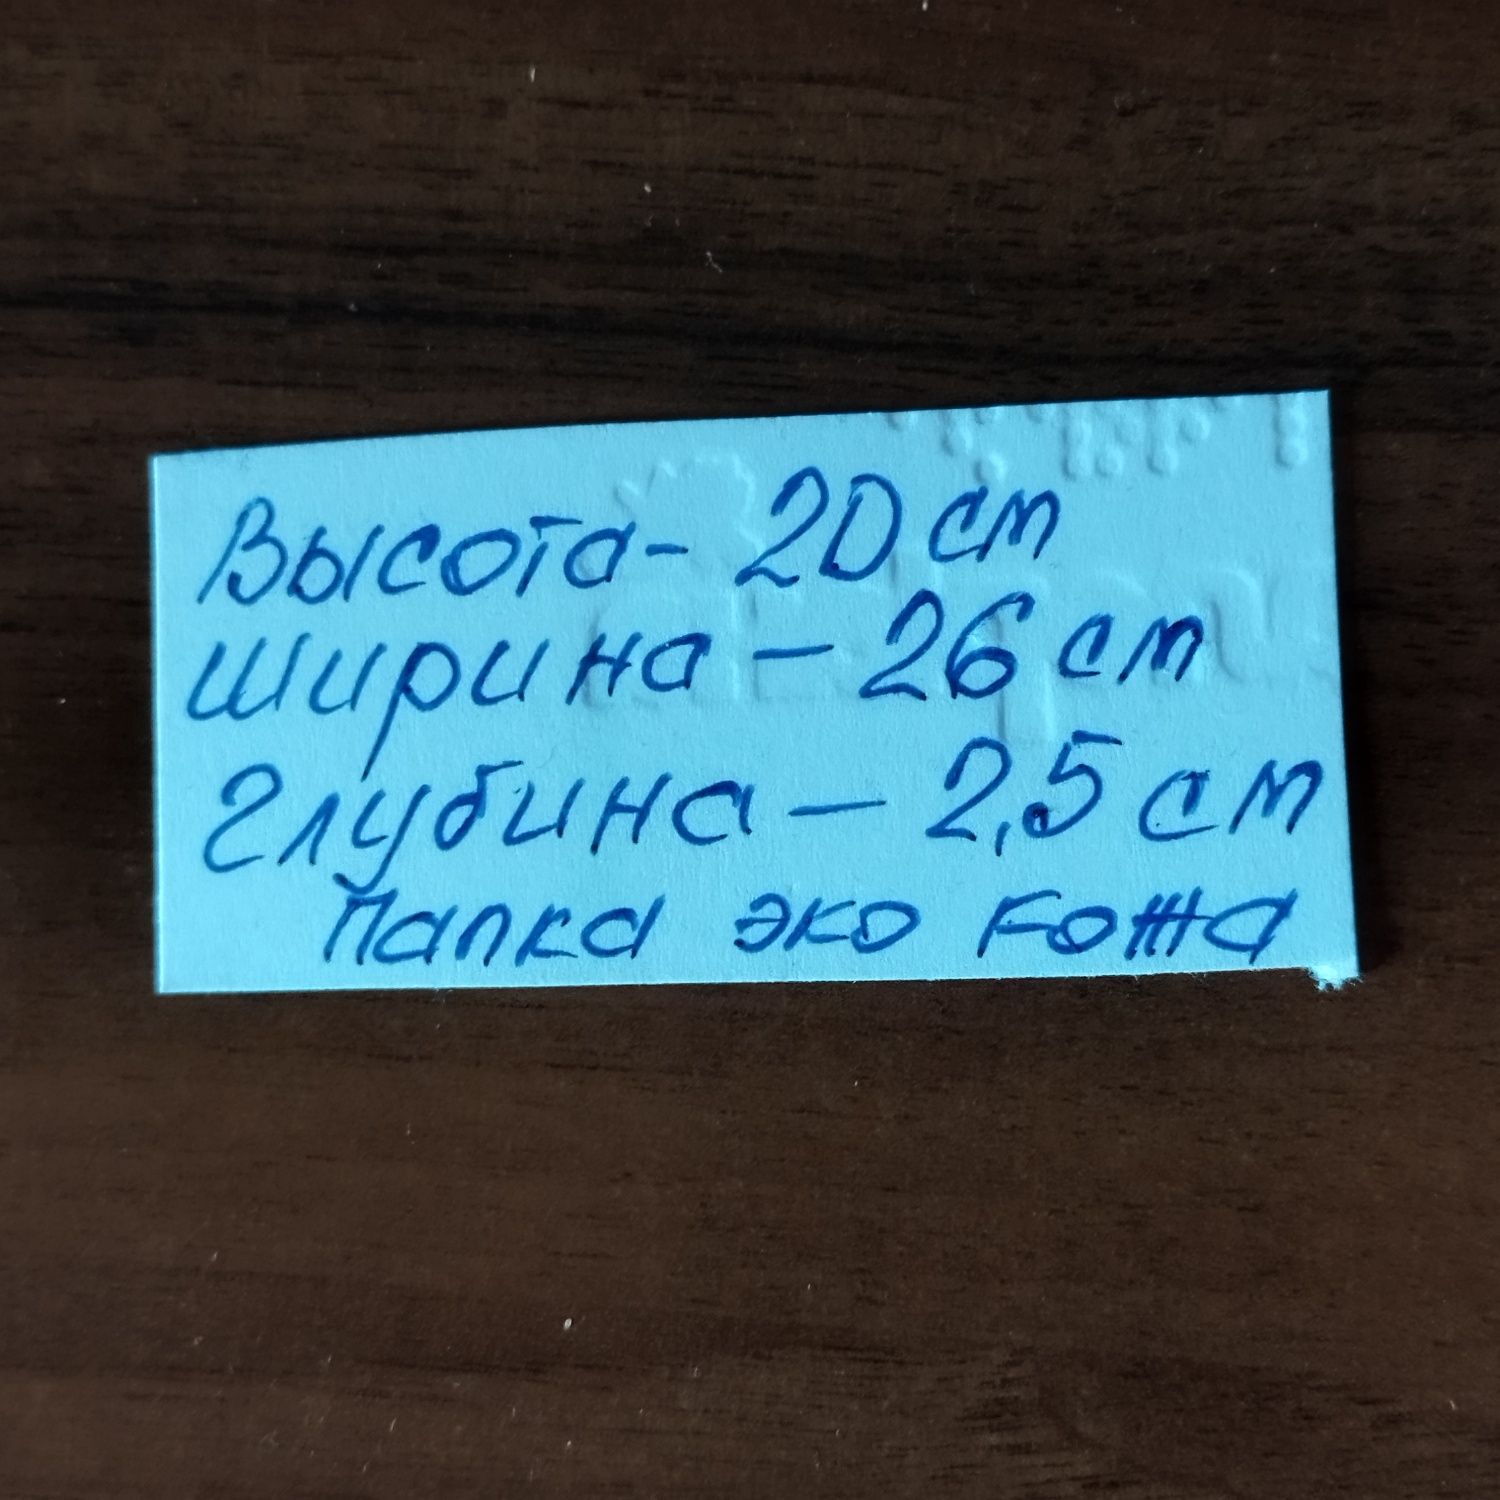 Высота- 20 см
Ширина - 26 см
Глубина - 2,5 см
Папка эко кожа